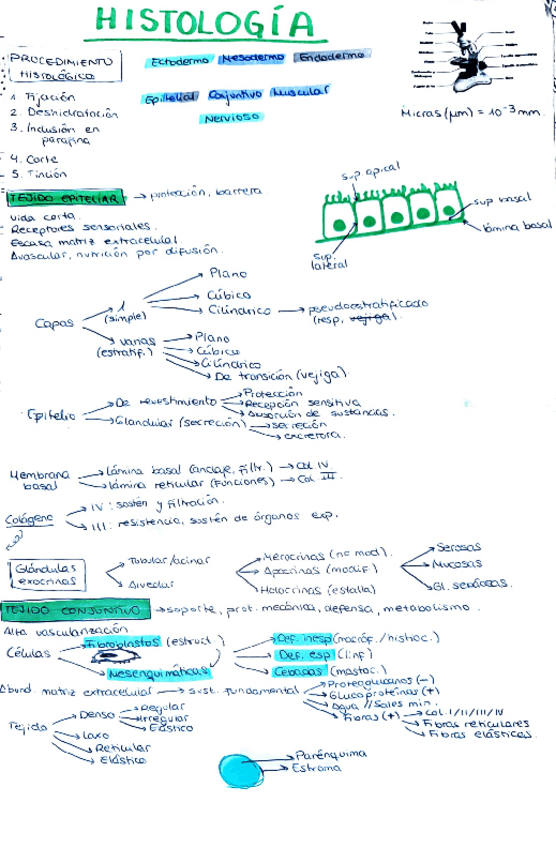 HISTOLOGÍA
PROCEDIMIENTO
HISTOLÓGICO
Ectodermo Mesodermo Endodermo
1. Fijación
2. Deshidratación
3. Inclusión en
parafina
4. Corte
5. Tinción
Epitelial Conjuntivo Muscular
Nervioso
Micras (µm) = 10⁻³ mm.
TEJIDO EPITELIAR → protección, barrera
vida corta.
Receptores sensoriales.
Escasa matriz extracelular.
Avascular, nutrición por difusión.
sup. apical
sup basal
lámina basal
sup.
lateral
Capas
1
(simple)
Plano
Cúbico
Cilíndrico → pseudoestratificado
(resp, vejiga).
varias
(estratif.)
Plano
Cúbico
Cilíndrico
De transición (vejiga)
Epitelio
De revestimiento
Protección
Recepción sensitiva
Absorción de sustancias.
Glandular (secreción)
secreción
excretora.
Membrana
basal
Lámina basal (anclaje, filtr.) → Col IV
lámina reticular (funciones) → Col. III
Colágeno
IV: sostén y filtración.
III: resistencia, sostén de órganos exp.
Glándulas
exocrinas
Tubular/acinar
Alveolar
Merocrinas (no mod).
Apocrinas (modif.)
Holocrinas (estalla)
Serosas
Mucosas
Gl. sebáceas.
TEJIDO CONJUNTIVO → soporte, prot. mecánica, defensa, metabolismo.
Alta vascularización
Células
Fibroblastos (estruct.)
Mesenquimáticas
Def. inesp (macróf./histioc.)
Def. esp (linf)
Cebadas (mastoc.)
Abund. matriz extracelular → sust. fundamental
Proteoglucanos (-)
Glucoproteínas (+)
Agua // Sales min.
Fibras (+) → Col. I/II/III/IV
Fibras reticulares
Fibras elásticas.
Tejido
Denso
Regular
Irregular
Elástico
Laxo
Reticular
Elástico
Parénquima
Estroma